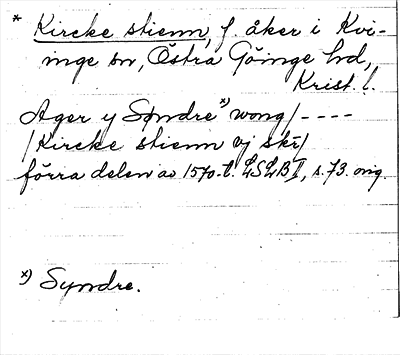 * Kircke stienn, f. åker i Kvi-
inge sn, Östra Göinge hd,
Krist. l.
Ager y Søndre x) wong / - - - -
/ Kircke stienn vj skr /
förra delen av 1570-t. LSLB II, s. 73. orig.
x) Syndre.